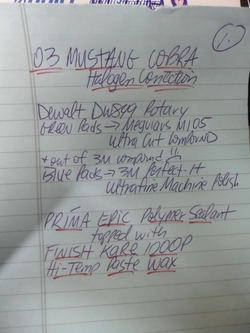 1.
03 MUSTANG COBRA
Halogen Correction
Dewalt DW849 Rotary
Green Pads → Meguiars M105
Ultra Cut Compound
* out of 3M compound !!
Blue Pads → 3M Perfect-It
Ultrafine Machine Polish
PRIMA EPIC Polymer Sealant
topped with
FINISH KARE 1000P
Hi-Temp Paste Wax